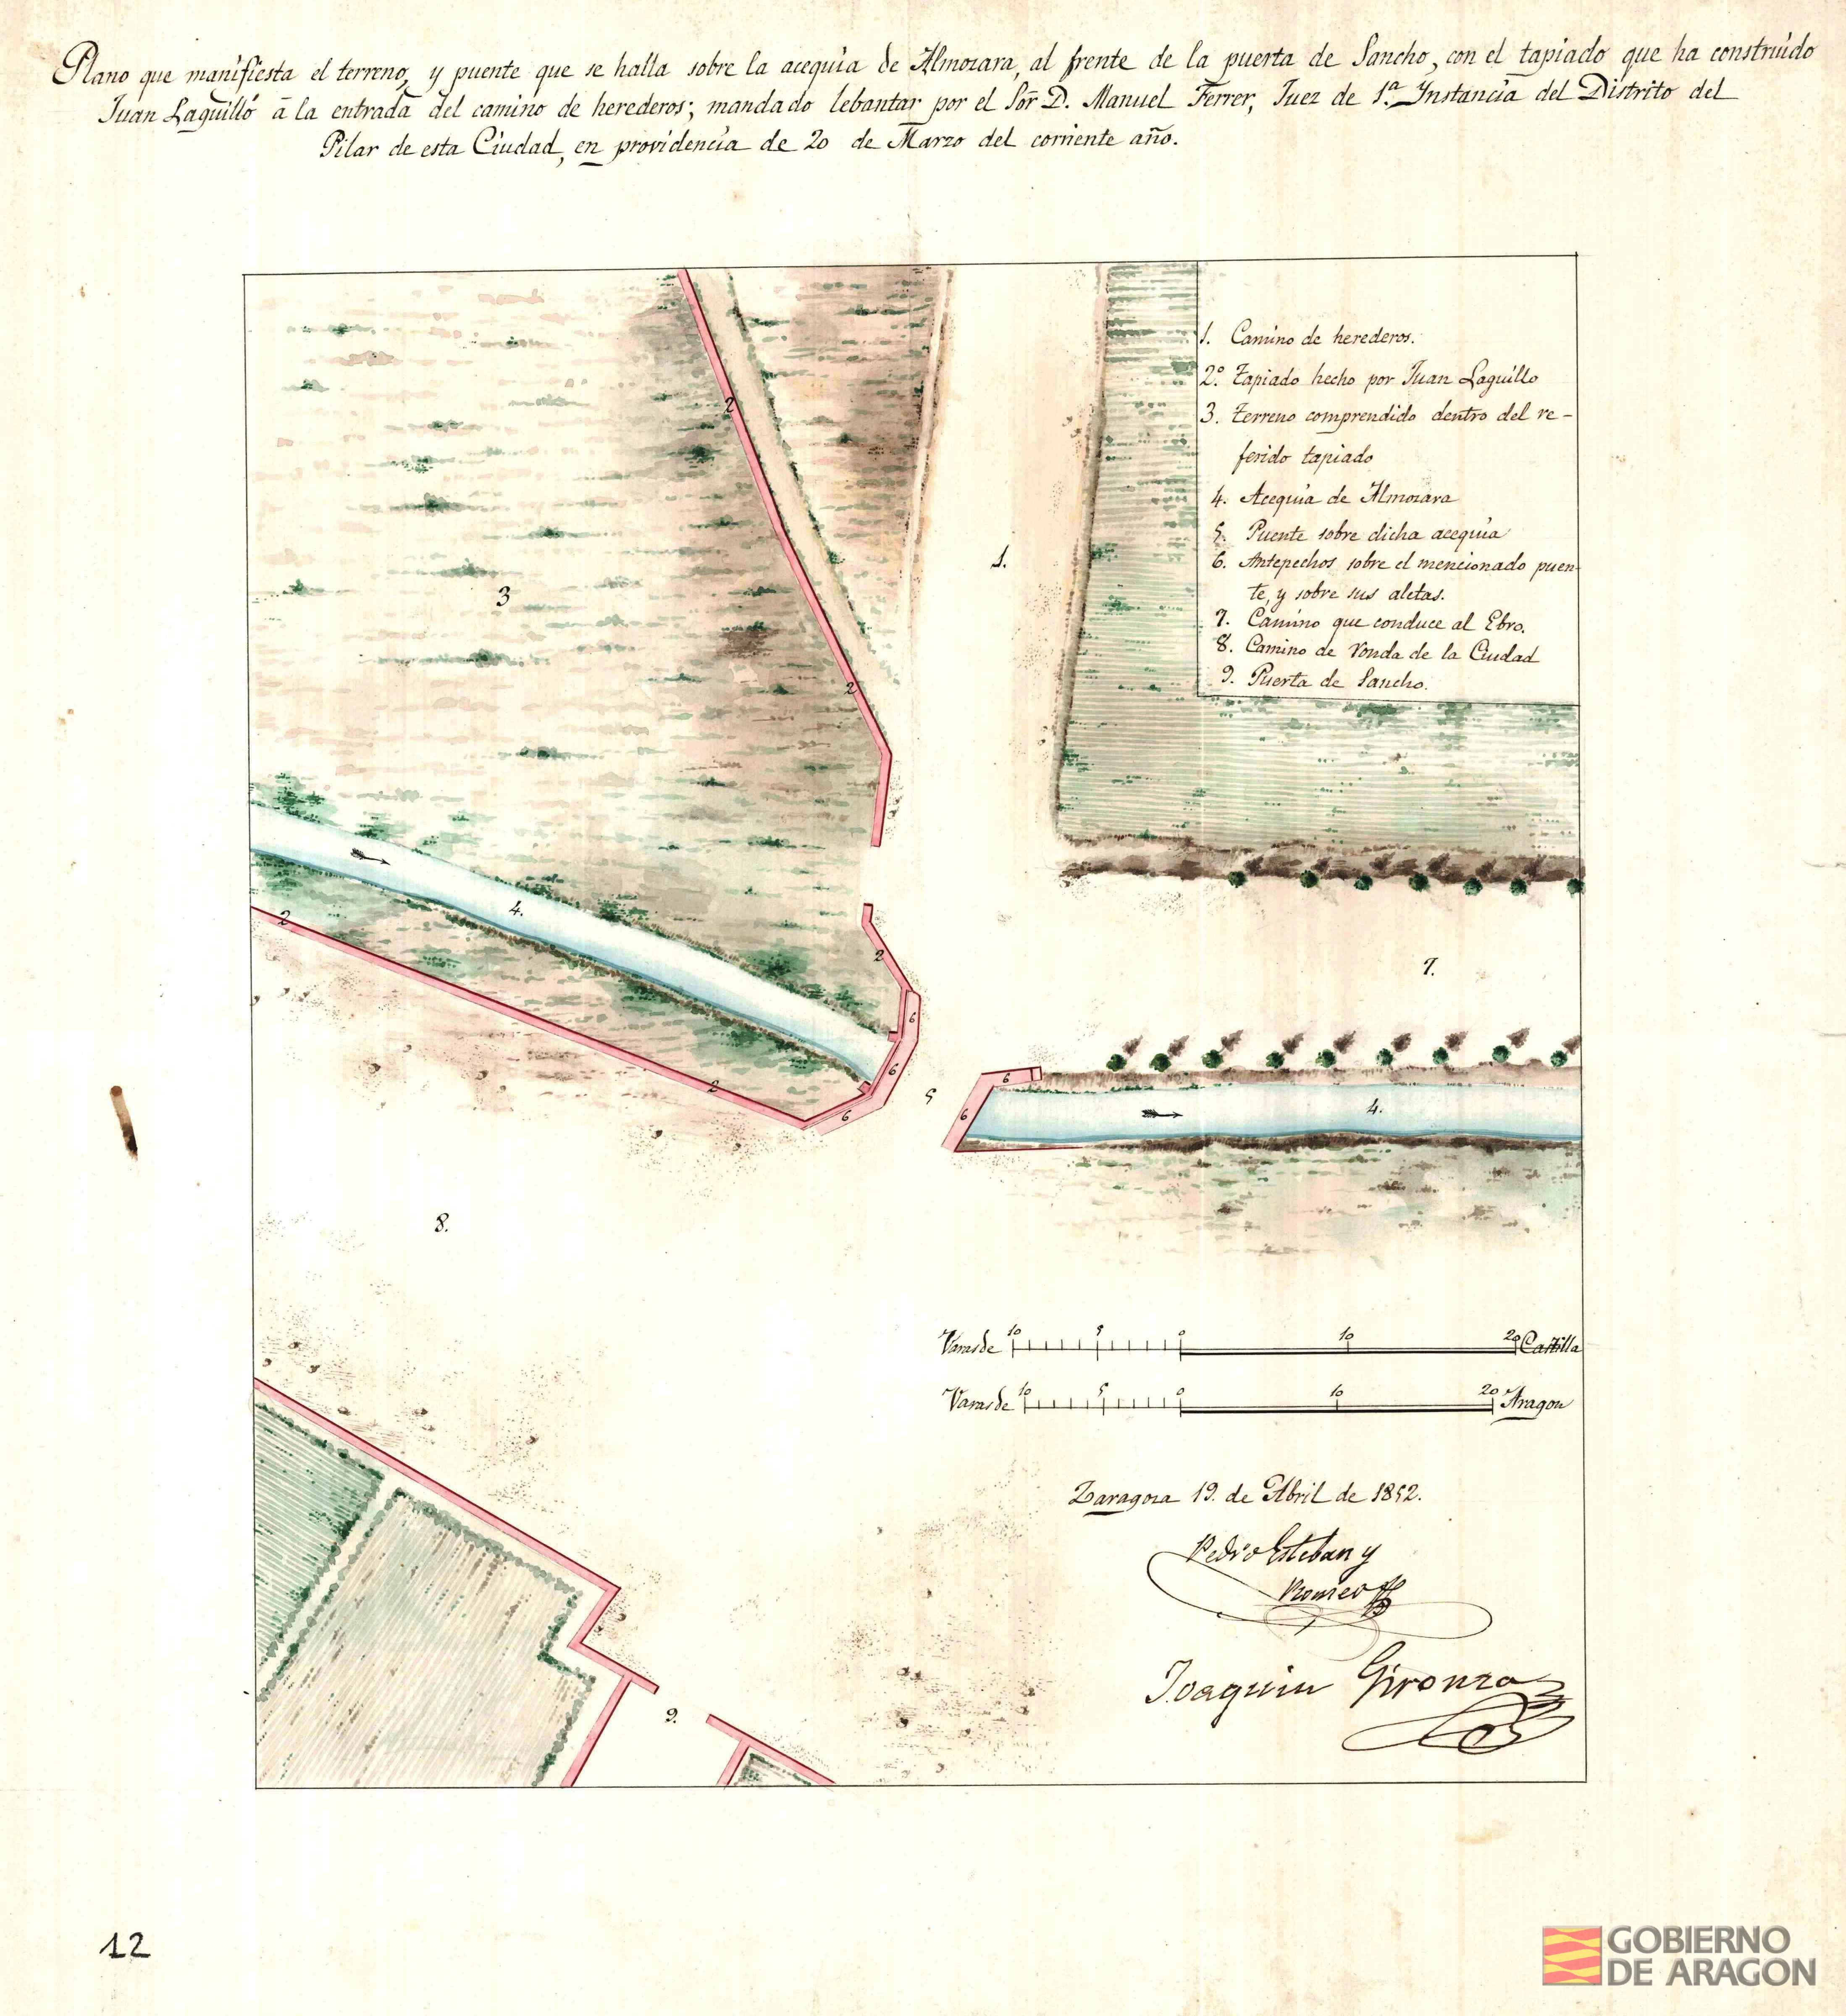 Plano que manifiesta el terreno, y puente que se halla sobre la acequia de Almozara, al frente de la puerta de Sancho, con el tapiado que ha construido
Juan Laguillo á la entrada del camino de herederos; mandado lebantar por el Sor. D. Manuel Ferrer, Juez de 1.ª Ynstancia del Distrito del
Pilar de esta Ciudad, en providencia de 20 de Marzo del corriente año.
1. Camino de herederos.
2º. Tapiado hecho por Juan Laguillo
3. Terreno comprendido dentro del re-
ferido tapiado
4. Acequia de Almozara
5. Puente sobre dicha acequia
6. Antepechos sobre el mencionado puen-
te, y sobre sus aletas.
7. Camino que conduce al Ebro.
8. Camino de ronda de la Ciudad
9. Puerta de Sancho.
2
1.
3
2
4.
2
2
7.
6
6
6
5
2
6
6
4.
8.
10 5 0 10 20
Varas de Castilla
10 5 0 10 20
Varas de Aragon
Zaragoza 19. de Abril de 1852.
Pedro Esteban y
Romeo
Joaquin Gironza
9.
12
GOBIERNO
DE ARAGON